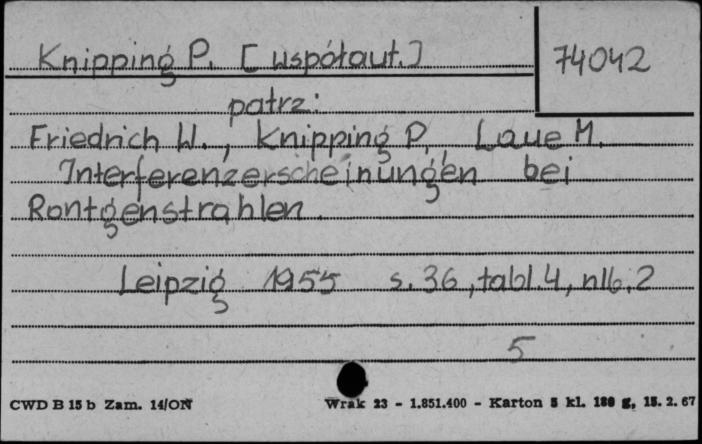 Knipping P. [współaut.] 74042
patrz:
Friedrich W., Knipping P., Laue M.
Interferenzerscheinungen bei
Rontgenstrahlen.
Leipzig 1955 s. 36, tabl. 4, nlb. 2
5
CWD B 15 b Zam. 14/ON Wrak 23 - 1.851.400 - Karton 5 kl. 180 g, 15. 2. 67